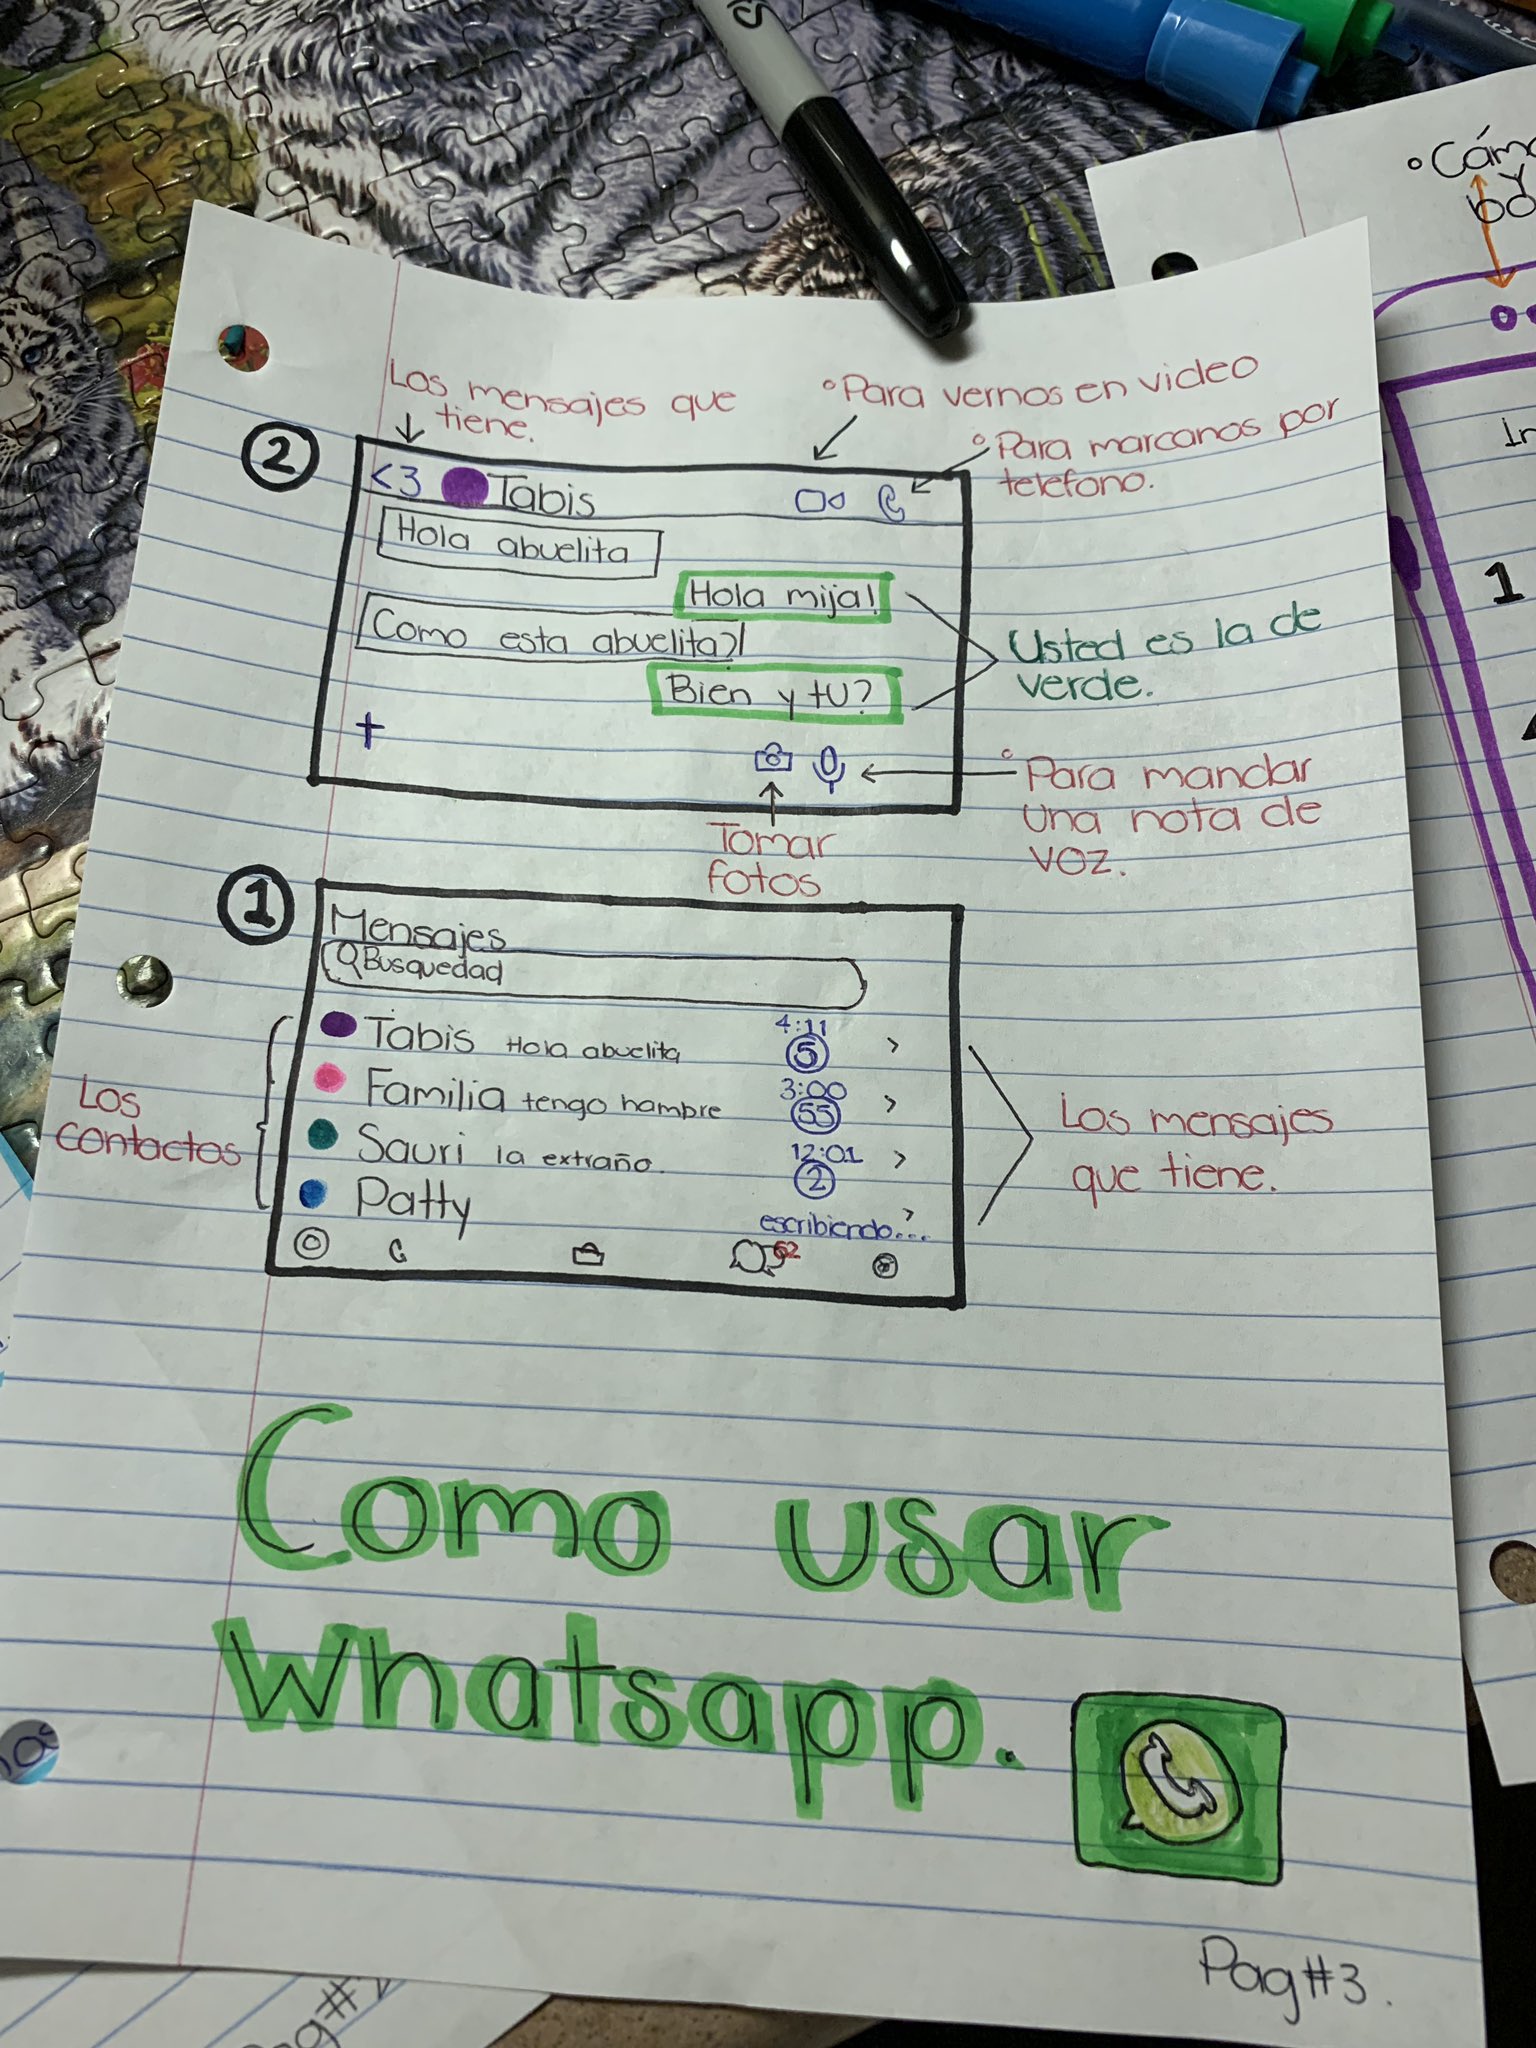 Los mensajes que
tiene.
°Para vernos en video
°Para marcanos por
telefono.
2
<3 Tabis
Hola abuelita
Hola mija!
Como esta abuelita?
Bien y tu?
Usted es la de
verde.
+
°Para mandar
una nota de
voz.
Tomar
fotos
1
Mensajes
Busquedad
Tabis Hola abuelita 4:11
5 >
Familia tengo hambre 3:00
55 >
Sauri la extraño. 12:01
2 >
Patty >
escribiendo...
62
Los
contactos
Los mensajes
que tiene.
Como usar
Whatsapp.
Pag#3.
°Cám
y
bo
In
1